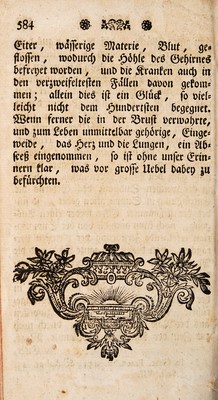 584
Eiter, wässerige Materie, Blut, ge-
flossen, wodurch die Höhle des Gehirnes
befreyet worden, und die Kranken auch in
den verzweifeltesten Fällen davon gekom-
men; allein dies ist ein Glück, so viel-
leicht nicht dem Hundertsten begegnet.
Wenn ferner die in der Brust verwahrte,
und zum Leben unmittelbar gehörige, Einge-
weide, das Herz und die Lungen, ein Ab-
sceß eingenommen, so ist ohne unser Erin-
nern klar, was vor grosse Uebel dabey zu
befürchten.